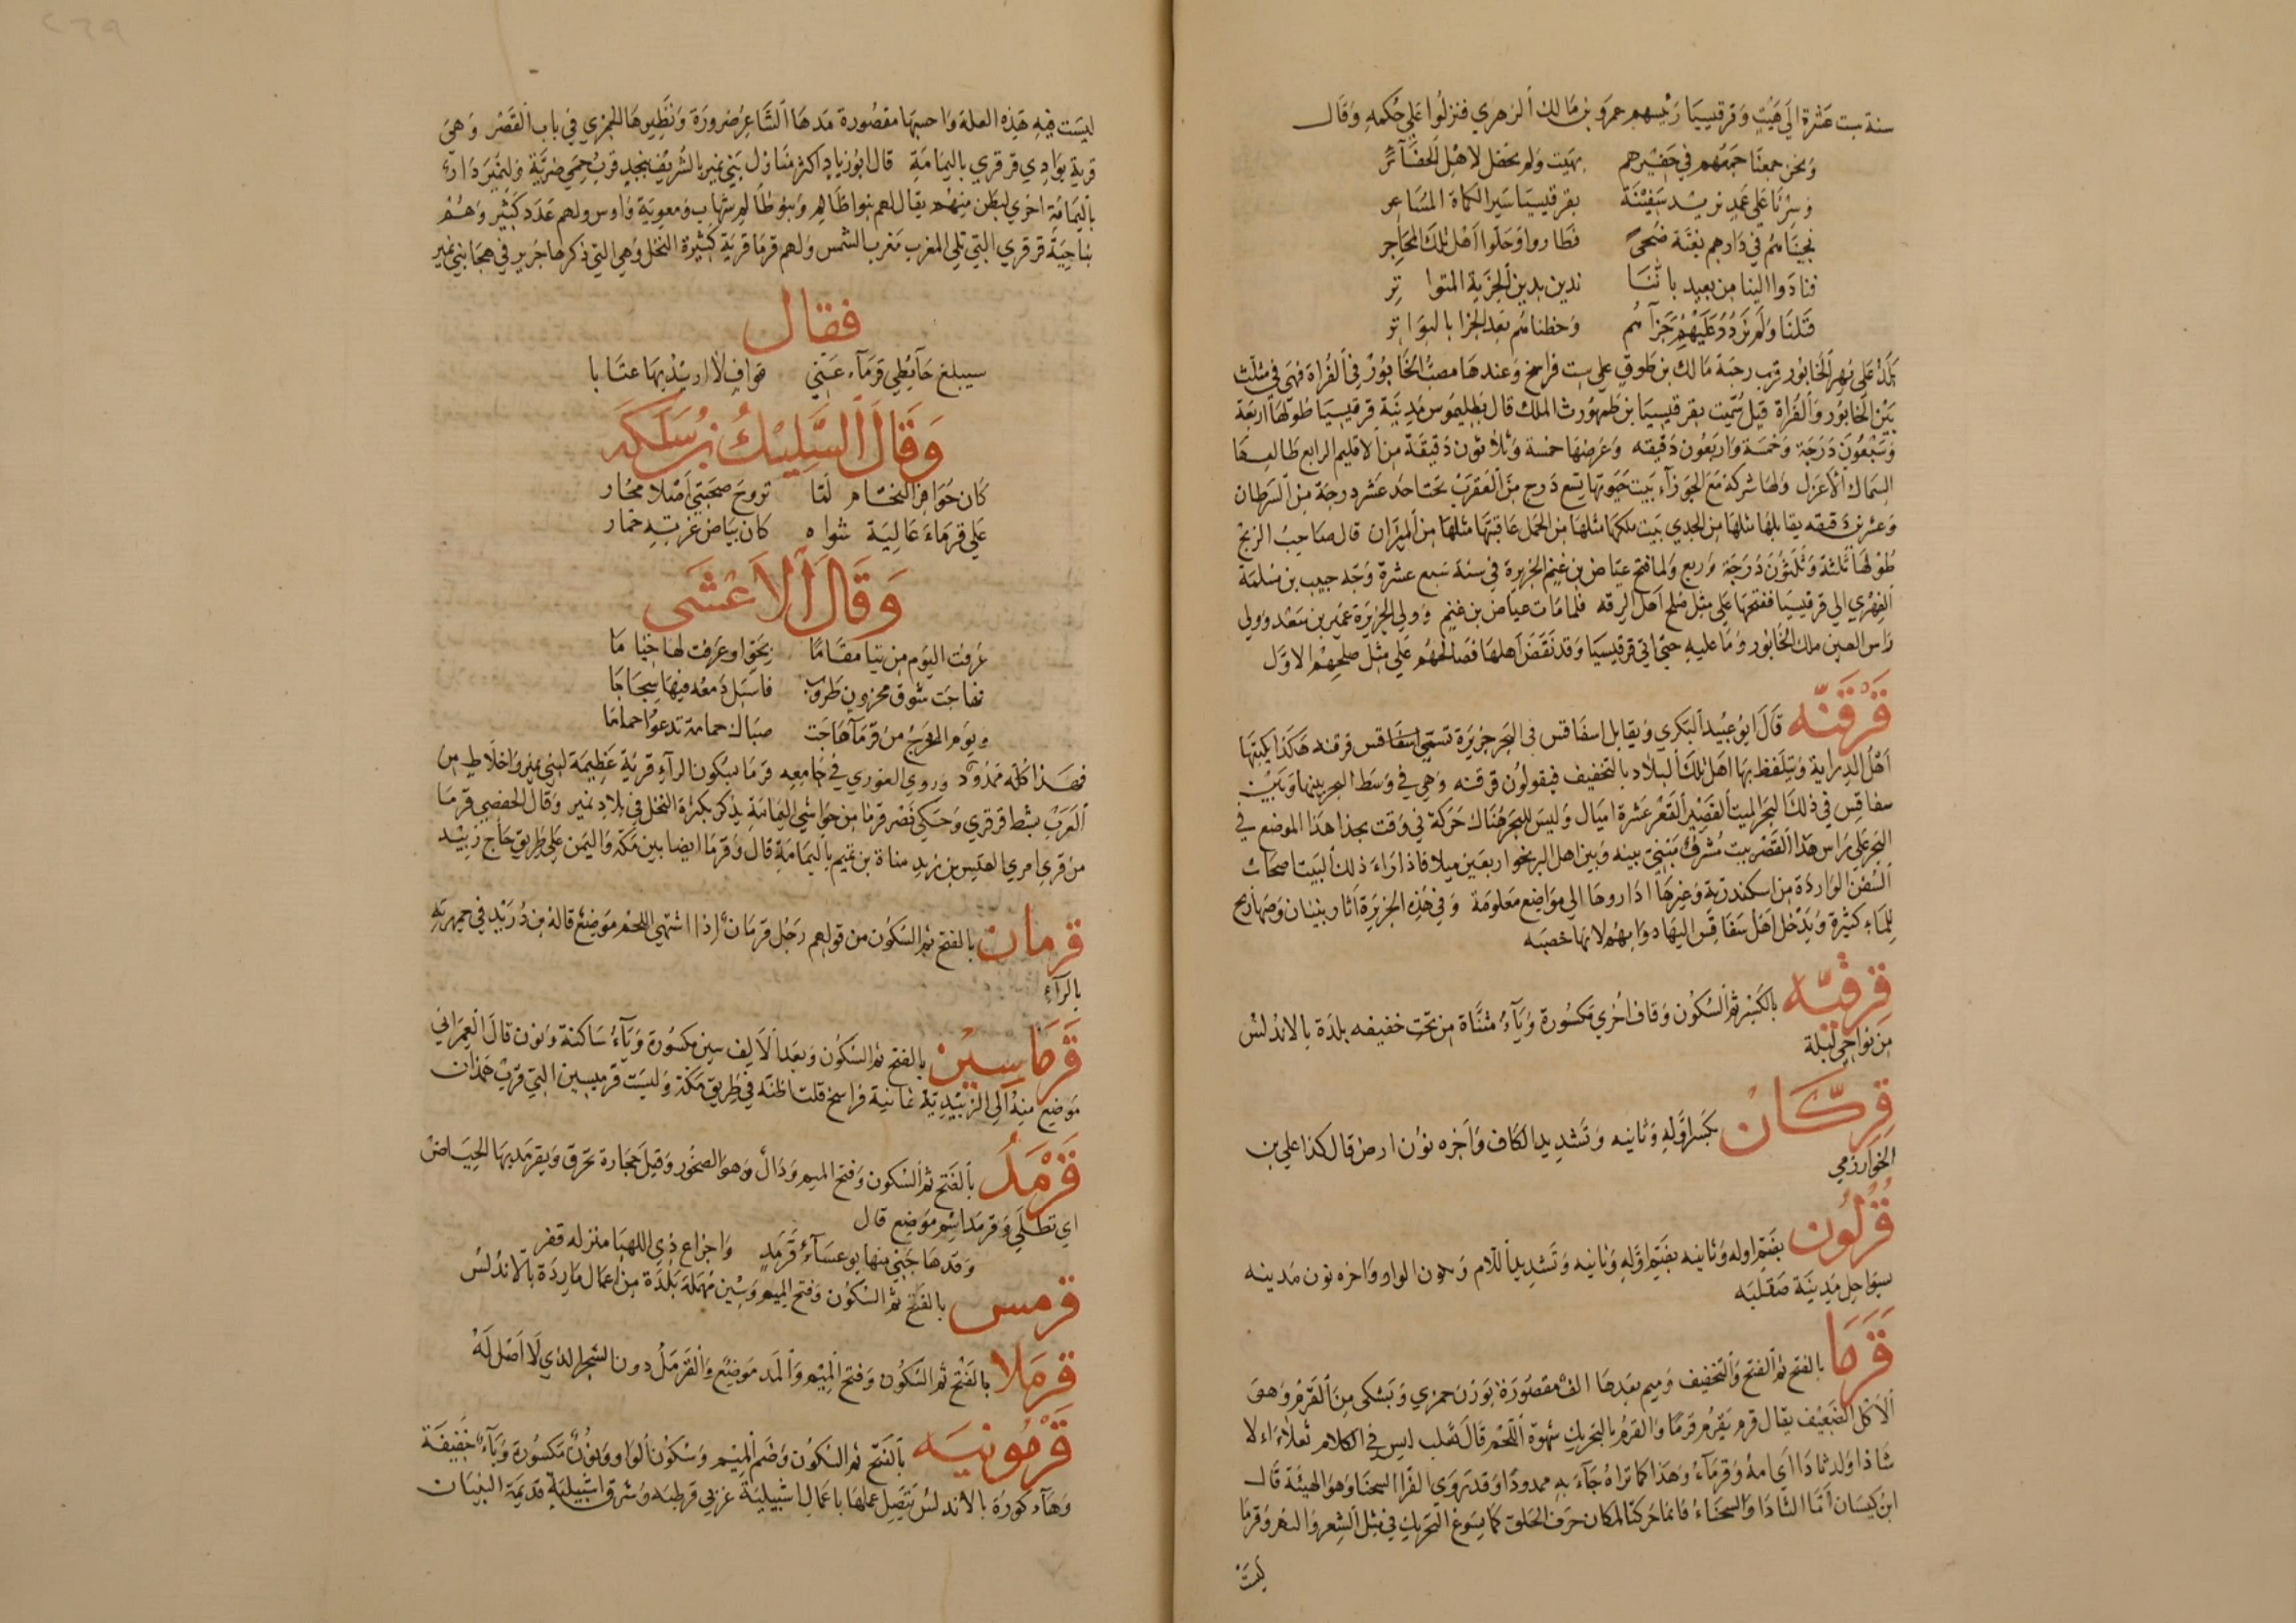 سنة ست عشرة الى هيت وقرقيسيا رئيسهم عمرو بن مالك الزهري فنزلوا على حكمه وقال
ونحن جمعنا جمعهم في حفيرهم بهيت ولم نحفل لاهل الحفائر
وسرنا على عمد نريد سفينة بقرقيسيا سير الكماة المساعر
فجيناهم في دارهم بغتة ضحى فطاروا وخلوا اهل تلك المحاجر
فنادوا الينا من بعيد باننا ندين بدين الجزية المتوا تر
قبلنا ولم نردد عليهم جزآهم وحطناهم بعد الجزا بالبواتر
بلد على نهر الخابور قرب رحبة مالك بن طوق على ست فراسخ وعندها مصب الخابور في الفراة فهي في مثلث
بين الخابور والفراة قيل سميت بقرقيسيا بن طهمورث الملك قال بطليموس مدينة قرقيسيا طولها اربعة
وستون درجة وخمسة واربعون دقيقه وعرضها خمسة وثلاثون دقيقة من الاقليم الرابع طالعها
السماك الاعزل ولها شركة مع الجوزآء بيت حيوتها تسع درج من العقرب تحت احد عشر درجة من السرطان
وعشرين دقيقه يقابلها مثلها من الجدي بيت ملكها مثلها من الحمل عاقبتها مثلها من الميزان قال صاحب الزيج
طولها ثلثة وثلثون درجة وربع ولما فتح عياض بن غنم الجزيرة في سنة سبع عشرة وجه حبيب بن مسلمة
الفهري الي قرقيسيا ففتحها على مثل صلح اهل الرقه فلما مات عياض بن غنم وولي الجزيرة عمير بن سعد وولي
راس العين ملك الخابور وما عليه حتى اتى قرقيسيا وقد نقض اهلها فصالحهم على مثل صلحهم الاول
قرقنه قال ابو عبيد البكري ويقابل اسفاقس في البحر جزيرة تسمى اسفاقس قرقنه هكذا يكتبها
اهل الدراية ويتلفظ بها اهل تلك البلاد بالتخفيف فيقولون قرقنه وهي في وسط البحر بينها وبين
سفاقس في ذلك البحر الميت القصير القعر عشرة اميال وليس للبحر هناك حركة في وقت بحذا هذا الموضع في
البحر على راس هذا القصر بيت مشرف مبني بينه وبين اهل البر نحو اربعين ميلا فاذا راء ذلك البيت اصحاب
السفن الواردة من اسكندرية وغيرها اداروها الي مواضع معلومة وفي هذه الجزيرة آثار بنيان وصهاريج
للماء كثيرة ويدخل اهل سفاقس اليها دوابهم لانها خصبه
قرقيه بالكسر ثم السكون وقاف اخري مكسورة وياء مثناة من تحت خفيفه بلدة بالاندلس
من نواحي لبلة
قركان بكسر اوله وثانيه وتشديد الكاف وآخره نون ارض قال كذا علي بن
الخوارزمي
قرلون بفتح اوله وثانيه بفتح اوله وثانيه وتشديد اللام وسكون الواو وآخره نون مدينه
بسواحل مدينة صقليه
قرما بالفتح ثم الفتح والتخفيف وميم بعدها الف مقصورة بوزن جمزي وبشكى من القرم وهو
الاكل الضعيف يقال قرم يقرم قرما والقرم بالتحريك شهوة اللحم قال ثعلب ليس في الكلام فعلاء الا
ثاداء وله ثاداء اي امة وقرمآء وهذا كما تراه جاء به ممدودا وقد روى الفرا السحنا وهو الهيئة قال
ابن كيسان اما الثادا والسحناء فانما حركتا لمكان حرف الحلق كما يسوغ التحريك في مثل الشعر والنهر وقرما
ليست
ليست فيه هذه العلة واحسبها مقصورة مدها الشاعر ضرورة ونظيرها الجمزي في باب القصر وهي
قرية بوادي قرقري باليمامة قال ابو زياد اكثر منازل بني نمير بالشريف بنجد قرب حمى ضرية ولنمير دارء
باليمامة اخري لبطن منهم يقال لهم بنو ظالم وبنو ظالم شهاب ومعوية واوس ولهم عدد كثير وهم
بناحية قرقري التي تلي المغرب مغرب الشمس ولهم قرما قرية كثيرة النخل وهي التي ذكرها جرير في هجا بني نمير
فقال
سيبلغ حآيطي قرمآء عني قواف لا اريد بها عتابا
وقال السليك بن سلكه
كان حوافر النحام لما تروح صحبتي اصلا محار
على قرماء عالية شواه كان بياض غرته خمار
وقال الاعشى
عرفت اليوم من تيا مقاما بجو او عرفت لها خيا ما
فهاجت شوق محزون طروب فاسبل دمعه فيها سجاما
ويوم الخرج من قرمآ هاجت صباك حمامة تدعوا حماما
فهذا كله ممدود وروي الغوري في جامعه قرما بسكون الرآء قرية عظيمة لبني نمير واخلاط من
العرب بشط قرقري وحكي نصر قرما من حواشي اليمامة يذكر بكثرة النخل في بلاد نمير وقال الحفصي قرما
من قري امري القيس بن زيد مناة بن تميم باليمامة قال وقرما ايضا بين مكة واليمن على طريق حاج زبيد
قرمان بالفتح ثم السكون من قولهم رجل قرمان اذا اشتهي اللحم موضع قاله بن دريد في جمهرته
بالرآء
قرماسين بالفتح ثم السكون وبعد الالف سين مكسورة وياء ساكنة ونون قال العمراني
موضع منه الى الزبيدية ثمانية فراسخ قلت اظنه في طريق مكة وليست قرميسين التي قرب همذان
قرمد بالفتح ثم السكون وفتح الميم ودال وهو الصخور وقيل حجارة تحرق ويقرمد بها الحياض
اي تطلي وقرمد اسم موضع قال
وقد هاجني منها بوعسآء قرمد واجزاع ذي اللهبا منزله قفر
قرمس بالفتح ثم السكون وفتح الميم وسين مهملة بلدة من اعمال ماردة بالاندلس
قرملا بالفتح ثم السكون وفتح الميم والمد موضع والقرمل دون الشجر الذي لا اصل له
قرمونيه بالفتح ثم السكون وضم الميم وسكون الواو ونون مكسورة وياء خفيفة
وهاء كورة بالاندلس يتصل عملها باعمال اشبيلية غربي قرطبه وشرقي اشبيلية قديمة البنيان